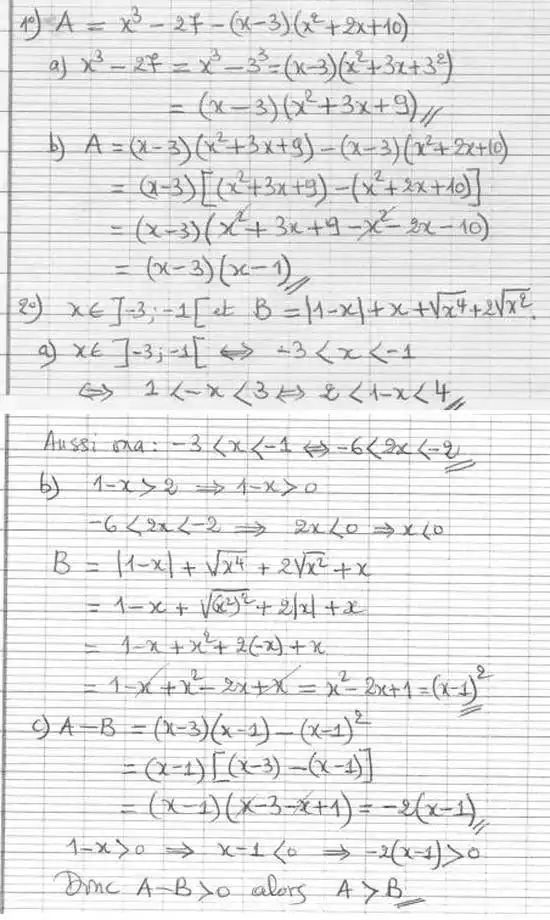 1°) A = x³ - 27 - (x-3)(x²+2x+10)
a) x³ - 27 = x³ - 3³ = (x-3)(x²+3x+3²)
= (x-3)(x²+3x+9)
b) A = (x-3)(x²+3x+9) - (x-3)(x²+2x+10)
= (x-3)[(x²+3x+9) - (x²+2x+10)]
= (x-3)(x²+3x+9-x²-2x-10)
= (x-3)(x-1)
2°) x∈]-3;-1[ et B = |1-x| + x + √x⁴ + 2√x².
a) x∈]-3;-1[ ⇔ -3<x<-1
⇔ 1<-x<3 ⇔ 2<1-x<4
Aussi ona: -3<x<-1 ⇔ -6<2x<-2
b) 1-x>2 ⇒ 1-x>0
-6<2x<-2 ⇒ 2x<0 ⇒ x<0
B = |1-x| + √x⁴ + 2√x² + x
= 1-x + √(x²)² + 2|x| + x
= 1-x + x² + 2(-x) + x
= 1-x + x² - 2x + x = x² - 2x + 1 = (x-1)²
c) A-B = (x-3)(x-1) - (x-1)²
= (x-1)[(x-3) - (x-1)]
= (x-1)(x-3-x+1) = -2(x-1)
1-x>0 ⇒ x-1<0 ⇒ -2(x-1)>0
Donc A-B>0 alors A>B